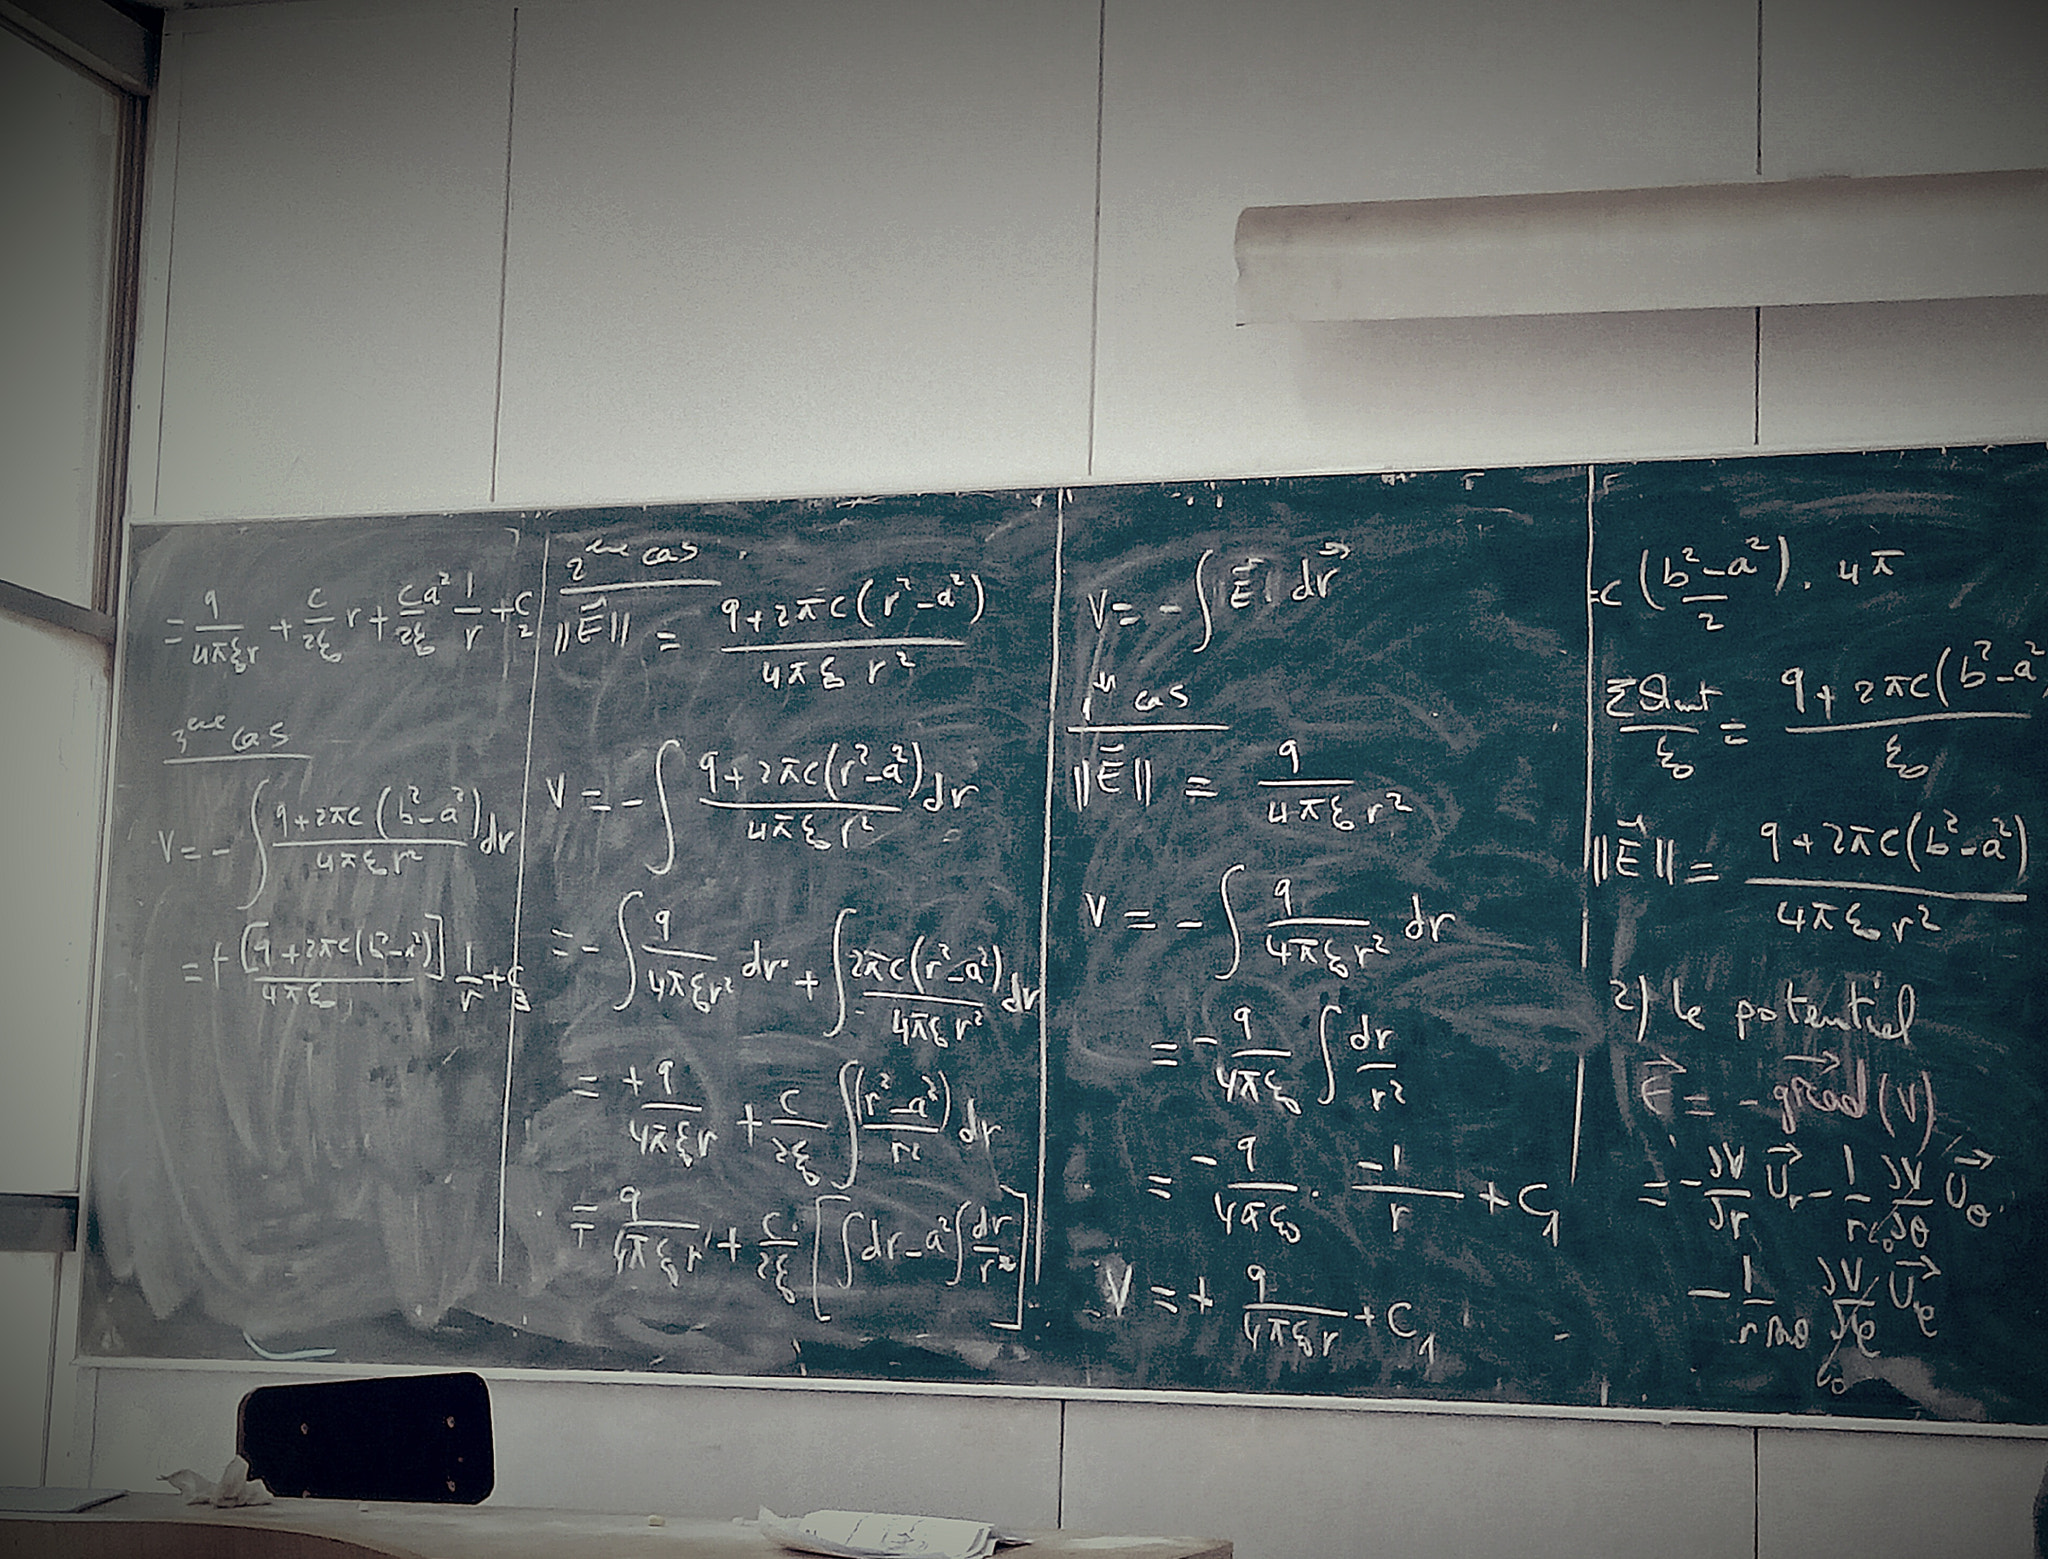 = q/(4πξ₀r) + c/(2ξ₀) r + ca²/(2ξ₀) 1/r + C₂
3eme cas
V = - ∫ (q+2πc(b²-a²))/(4πξ₀r²) dr
= + [q+2πc(b²-a²)]/(4πξ₀) 1/r + C₃
2eme cas
||E⃗|| = (q+2πc(r²-a²))/(4πξ₀ r²)
V = - ∫ (q+2πc(r²-a²))/(4πξ₀ r²) dr
= - ∫ q/(4πξ₀r²) dr + ∫ - (2πc(r²-a²))/(4πξ₀r²) dr
= + q/(4πξ₀r) + c/(2ξ₀) ∫ (r²-a²)/r² dr
= q/(4πξ₀r) + c/(2ξ₀) [∫dr - a²∫dr/r²]
V = - ∫ E⃗ . dr⃗
cas
||E⃗|| = q/(4πξ₀r²)
V = - ∫ q/(4πξ₀r²) dr
= - q/(4πξ₀) ∫ dr/r²
= - q/(4πξ₀) . -1/r + C₁
V = + q/(4πξ₀r) + C₁
=c (b²-a²)/2 . 4π
ΣQint/ξ₀ = (q+2πc(b²-a²))/ξ₀
||E⃗|| = (q+2πc(b²-a²))/(4πξ₀r²)
2) le potentiel
E⃗ = - grad⃗(V)
= - ∂V/∂r U⃗r - 1/r ∂V/∂θ U⃗θ
- 1/(r sinθ) ∂V/∂φ U⃗φ